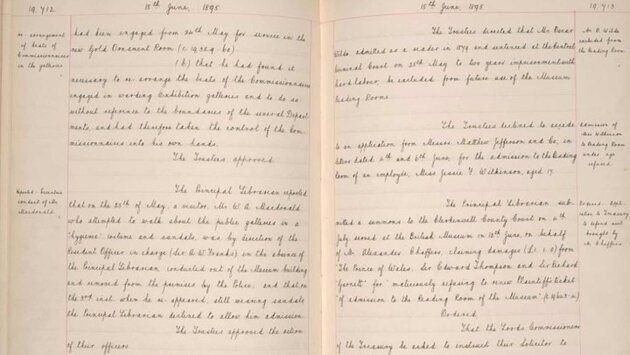 19,712
15th June, 1895
re-arrangement
of beats of
Commissionaires
in the galleries
had been engaged from 24th May for service in the
new Gold Ornament Room
(b) that he had found it
necessary to re-arrange the beats of the Commissionaires
engaged in warding Exhibition galleries and to do so
without reference to the boundaries of the several Depart-
ments, and had therefore taken the control of the Com-
missionaires into his own hands.
The Trustees approved
Reported
conduct of Mr
Macdonald
The Principal Librarian reported
that on the 25th of May, a visitor, Mr W. A. Macdonald
who attempted to walk about the public galleries in a
"hygienic" costume and sandals, was by direction of the
Resident Officer in charge (Sir A. W. Franks) in the absence of
the Principal Librarian conducted out of the Museum building
and removed from the premises by the Police, and that on
the inst. when he re-appeared, still wearing sandals
the Principal Librarian declined to allow him admission.
The Trustees approved the action
of their officers
15th June, 1895
19,713
The Trustees directed that Mr Oscar
Wilde admitted as a reader in 1879 and sentenced at the Central
Criminal Court on 25th May to two years imprisonment with
hard labour, be excluded from future use of the Museum
Reading Room.
Mr O. Wilde
excluded from
the Reading Room
The Trustees declined to accede
to an application from Messrs Matthew Jefferson and Co, in
letters dated 4th and 6th June, for the admission to the Reading
Room of an employee, Miss Jessie F. Wilkinson, aged 19.
Admission of
Miss Wilkinson
to Reading Room
under age
refused
The Principal Librarian sub-
mitted a summons to the Clerkenwell County Court on
July served at the British Museum on 12th June, on behalf
of Mr Alexander Chaffers, claiming damages (£1.1.0) from
"The Prince of Wales, Sir Edward Thompson and Sir Richard
Garnett" for "maliciously refusing to renew Plaintiff's ticket
of admission to the Reading Room of the Museum"
to Treasury
to defend suit
brought by
Mr Chaffers
Ordered
That the Lords Commissioners
of the Treasury be asked to instruct their Solicitor to